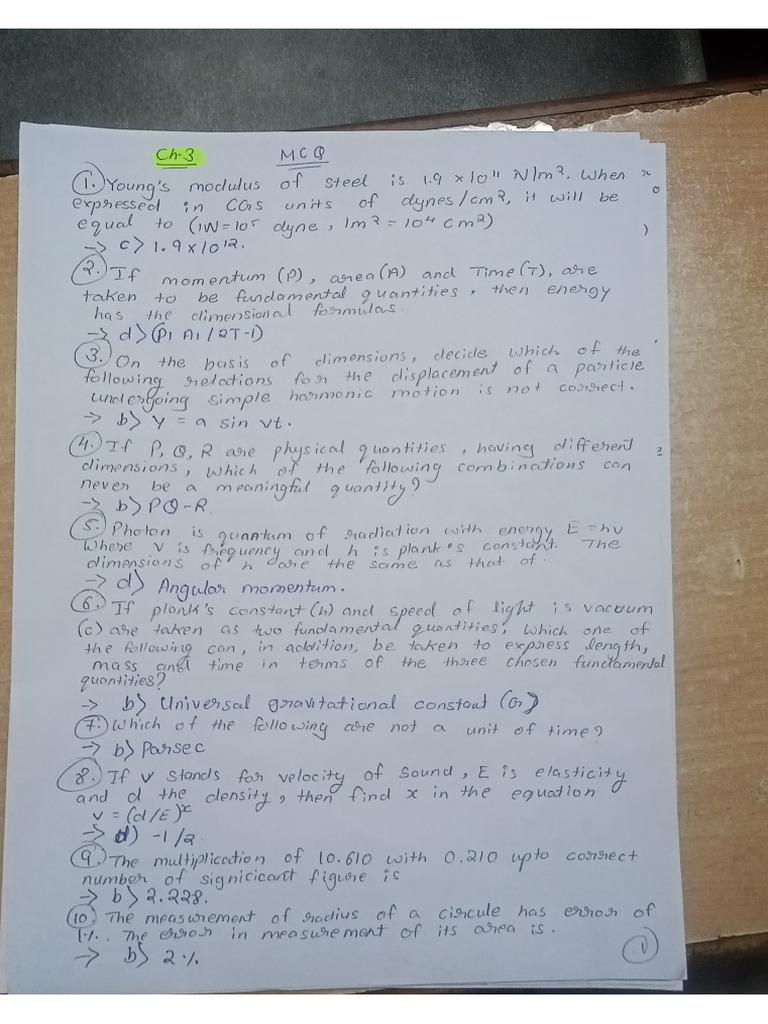 Ch-3 MCQ
1. Young's modulus of steel is 1.9 x 10¹¹ N/m². When
expressed in CGS units of dynes/cm², it will be
equal to (1N=10⁵ dyne, 1m² = 10⁴ cm²)
→ c> 1.9x10¹².
2. If momentum (P), area(A) and Time(T), are
taken to be fundamental quantities, then energy
has the dimensional formulas.
→ d> (P1 A1/2T-1)
3. On the basis of dimensions, decide which of the
following relations for the displacement of a particle
undergoing simple harmonic motion is not correct.
→ b> Y = a sin vt.
4. If P, Q, R are physical quantities, having different
dimensions, which of the following combinations can
never be a meaningful quantity?
→ b> PQ-R.
5. Photon is quantum of radiation with energy E = hv
Where v is frequency and h is plank's constant. The
dimensions of h are the same as that of.
→ d> Angular momentum.
6. If plank's constant (h) and speed of light is vacuum
(c) are taken as two fundamental quantities, which one of
the following can, in addition, be taken to express length,
mass and time in terms of the three chosen fundamental
quantities?
→ b> Universal gravitational constant (G)
7. Which of the following are not a unit of time?
→ b> Parsec
8. If v stands for velocity of sound, E is elasticity
and d the density, then find x in the equation
v = (d/E)ˣ
→ d) -1/2.
9. The multiplication of 10.610 with 0.210 upto correct
number of signicicant figure is
→ b> 2.228.
10. The measurement of radius of a circule has error of
1%. The error in measurement of its area is.
→ b> 2%
1